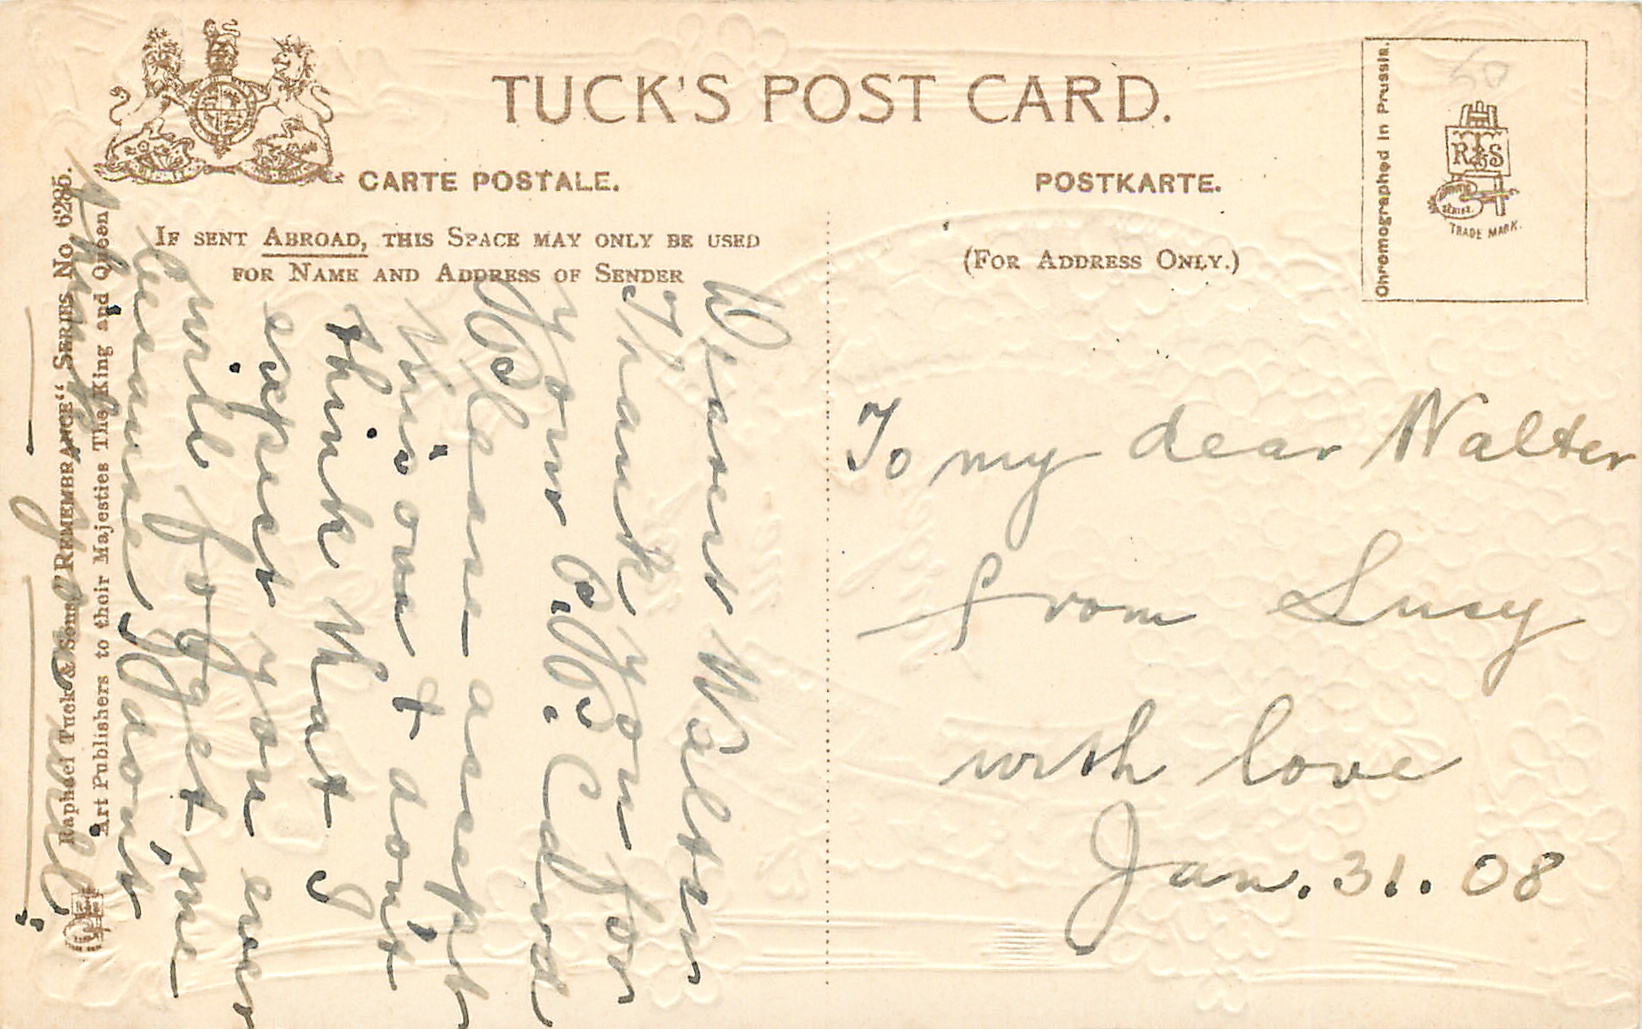 TUCK'S POST CARD.
CARTE POSTALE.
POSTKARTE.
IF SENT ABROAD, THIS SPACE MAY ONLY BE USED
FOR NAME AND ADDRESS OF SENDER
(FOR ADDRESS ONLY.)
Chromographed in Prussia.
50
R T & S
TRADE MARK.
Raphael Tuck & Sons' "REMEMBRANCE" SERIES No. 6285.
Art Publishers to their Majesties The King and Queen
Dearest Walter
Thank you for
your P.P. Card
Please accept
this one & don't
think that I
expect you ever
will forget me
because I don't
think you will
To my dear Walter
from Lucy
with love
Jan. 31. 08